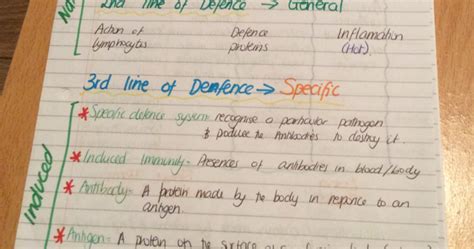 2nd line of Defence → General
Action of lymphocytes
Defence proteins
Inflamation (Hot).
3rd line of Demfence → Specific
* Specific defence system: recognise a particular pathogen
& produce the Antibodies to destroy it
* Induced Immunity - Presences of antibodies in blood/body
* Antibody - A protein made by the body in reponce to an
antigen.
* Antigen - A protein on the surface
Induced